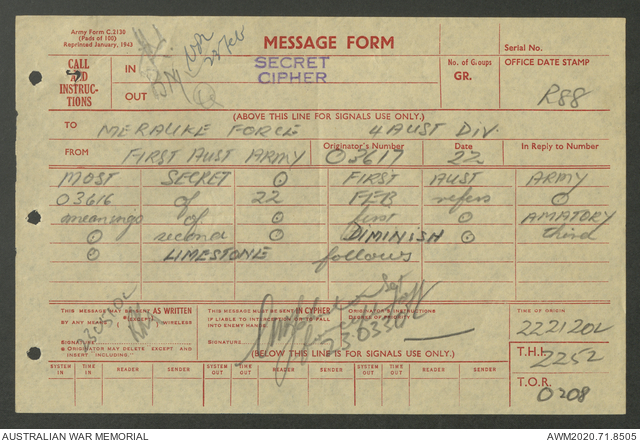 Army Form C.2130
(Pads of 100)
Reprinted January, 1943
MESSAGE FORM
Serial No.
CALL AND INSTRUC-TIONS
IN
SECRET
CIPHER
No. of Groups
GR.
OFFICE DATE STAMP
OUT
R88
(ABOVE THIS LINE FOR SIGNALS USE ONLY.)
TO MERAUKE FORCE 4 AUST DIV.
FROM FIRST AUST ARMY Originator's Number 03617 Date 22 In Reply to Number
MOST SECRET ⊙ FIRST AUST ARMY
03616 of 22 FEB refers ⊙
meanings of first AMATORY
⊙ second DIMINISH ⊙ third
⊙ LIMESTONE follows
THIS MESSAGE MAY BE SENT AS WRITTEN BY ANY MEANS, *(EXCEPT), WIRELESS
SIGNATURE
* ORIGINATOR MAY DELETE EXCEPT AND INDENT INCLUDING.
THIS MESSAGE MUST BE SENT IN CYPHER
IF LIABLE TO INTERCEPTION OR TO FALL INTO ENEMY HANDS.
SIGNATURE
230330L
ORIGINATOR'S INSTRUCTIONS
DEGREE OF
TIME OF ORIGIN
222120L
(BELOW THIS LINE FOR SIGNALS USE ONLY.)
T.H.I. 2252
SYSTEM IN TIME IN READER SENDER SYSTEM OUT TIME OUT READER SENDER SYSTEM OUT TIME OUT READER SENDER
T.O.R. 0208
AUSTRALIAN WAR MEMORIAL
AWM2020.71.8505